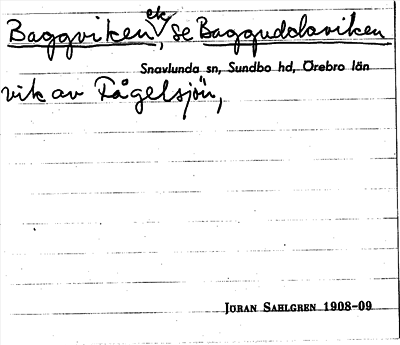 Baggviken ek, se Bagguddaviken
Snavlunda sn, Sundbo hd, Örebro län
vik av Fågelsjön,
JÖRAN SAHLGREN 1908-09